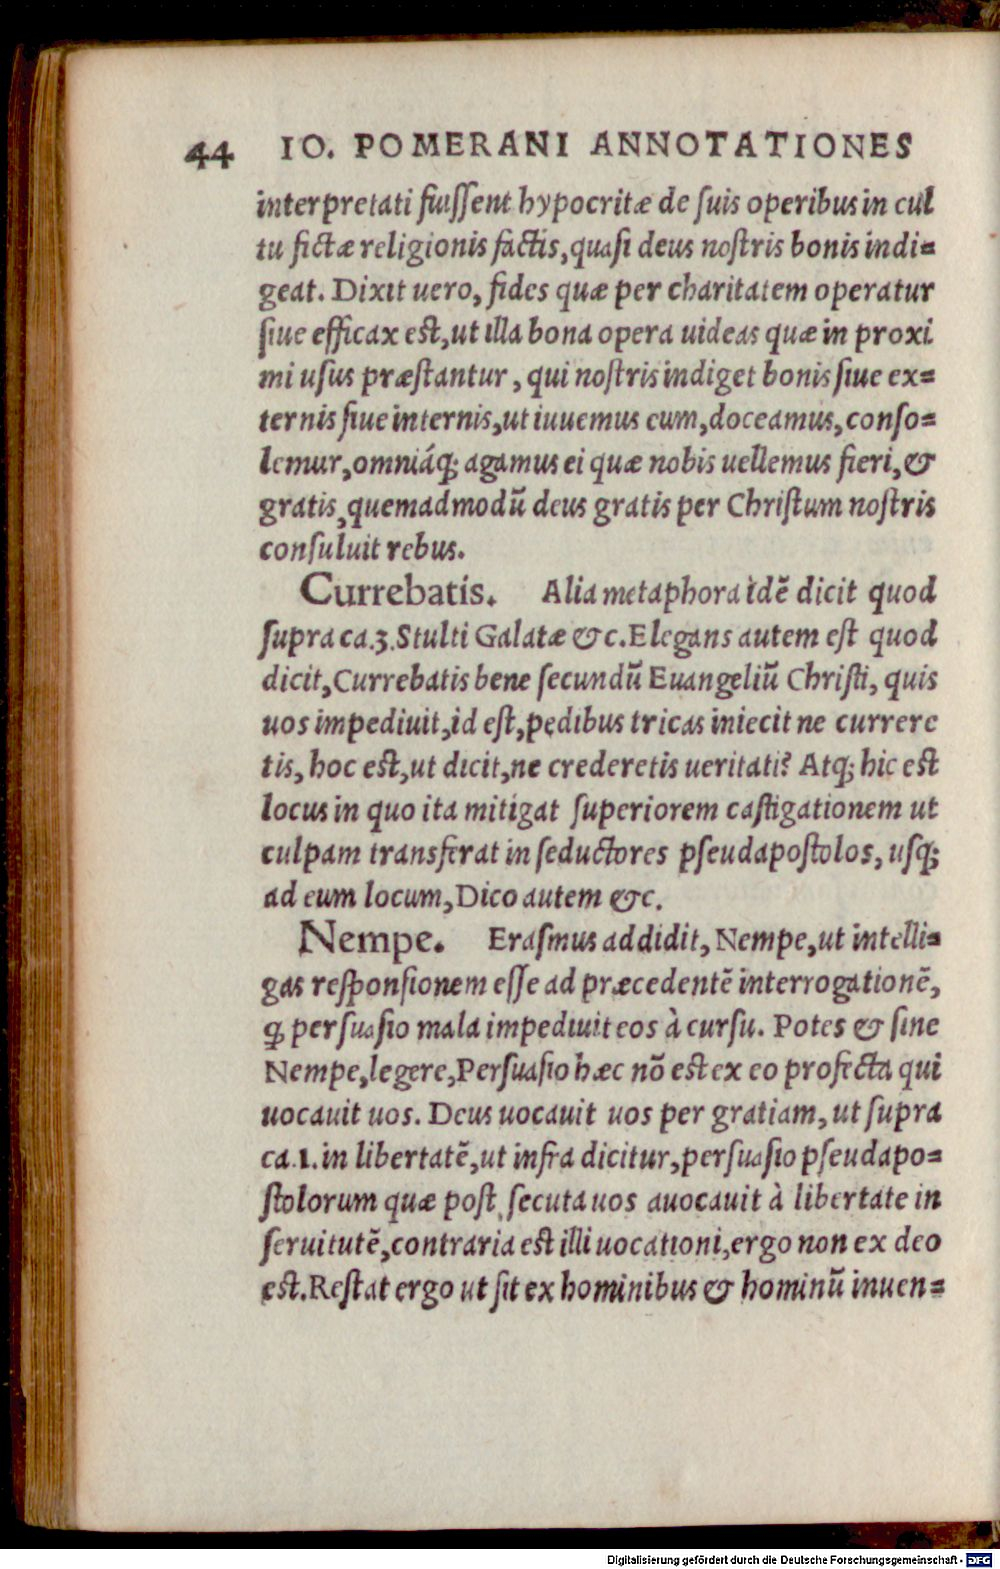 44 IO. POMERANI ANNOTATIONES
interpretati fuiſſent hypocritæ de ſuis operibus in cul
tu fictæ religionis factis, quaſi deus noſtris bonis indi=
geat. Dixit uero, fides quæ per charitatem operatur
ſiue efficax eſt, ut illa bona opera uideas quæ in proxi
mi uſus præſtantur, qui noſtris indiget bonis ſiue ex=
ternis ſiue internis, ut iuuemus eum, doceamus, conſo=
lemur, omniáq; agamus ei quæ nobis uellemus fieri, &
gratis, quemadmodũ deus gratis per Chriſtum noſtris
conſuluit rebus.
Currebatis. Alia metaphora idẽ dicit quod
ſupra ca.3. Stulti Galatæ &c. Elegans autem eſt quod
dicit, Currebatis bene ſecundũ Euangeliũ Chriſti, quis
uos impediuit, id eſt, pedibus tricas iniecit ne currere
tis, hoc eſt, ut dicit, ne crederetis ueritati? Atq; hic eſt
locus in quo ita mitigat ſuperiorem caſtigationem ut
culpam transferat in ſeductores pſeudapoſtolos, uſq;
ad eum locum, Dico autem &c.
Nempe. Eraſmus addidit, Nempe, ut intelli=
gas reſponſionem eſſe ad præcedentẽ interrogationẽ,
ꝙ perſuaſio mala impediuit eos à curſu. Potes & ſine
Nempe, legere, Perſuaſio hæc nõ eſt ex eo profecta qui
uocauit uos. Deus uocauit uos per gratiam, ut ſupra
ca.1. in libertatẽ, ut infra dicitur, perſuaſio pſeudapo=
ſtolorum quæ poſt ſecuta uos auocauit à libertate in
ſeruitutẽ, contraria eſt illi uocationi, ergo non ex deo
eſt. Reſtat ergo ut ſit ex hominibus & hominũ inuen=
Digitalisierung gefördert durch die Deutsche Forschungsgemeinschaft - DFG